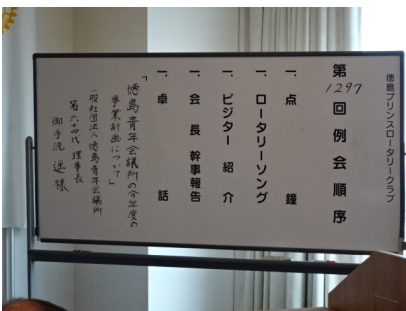 徳島プリンスロータリークラブ
第1297回例会順序
一、点鐘
一、ロータリーソング
一、ビジター紹介
一、会長幹事報告
一、卓話
「徳島青年会議所の今年度の
事業計画について」
一般社団法人徳島青年会議所
第六十四代理事長
御手洗 様